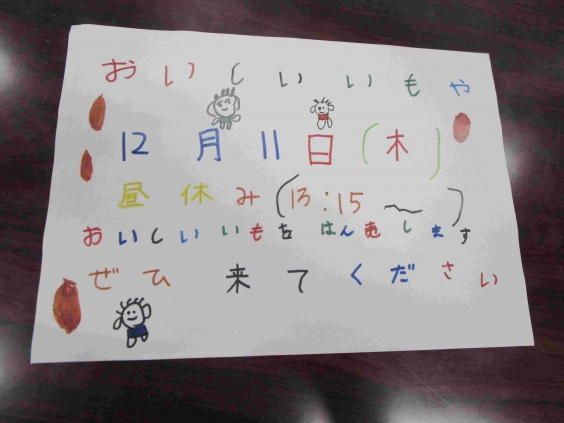 おいしいいもや
12月11日(木)
昼休み(13:15〜)
おいしいいもをはんばいします
ぜひ来てください